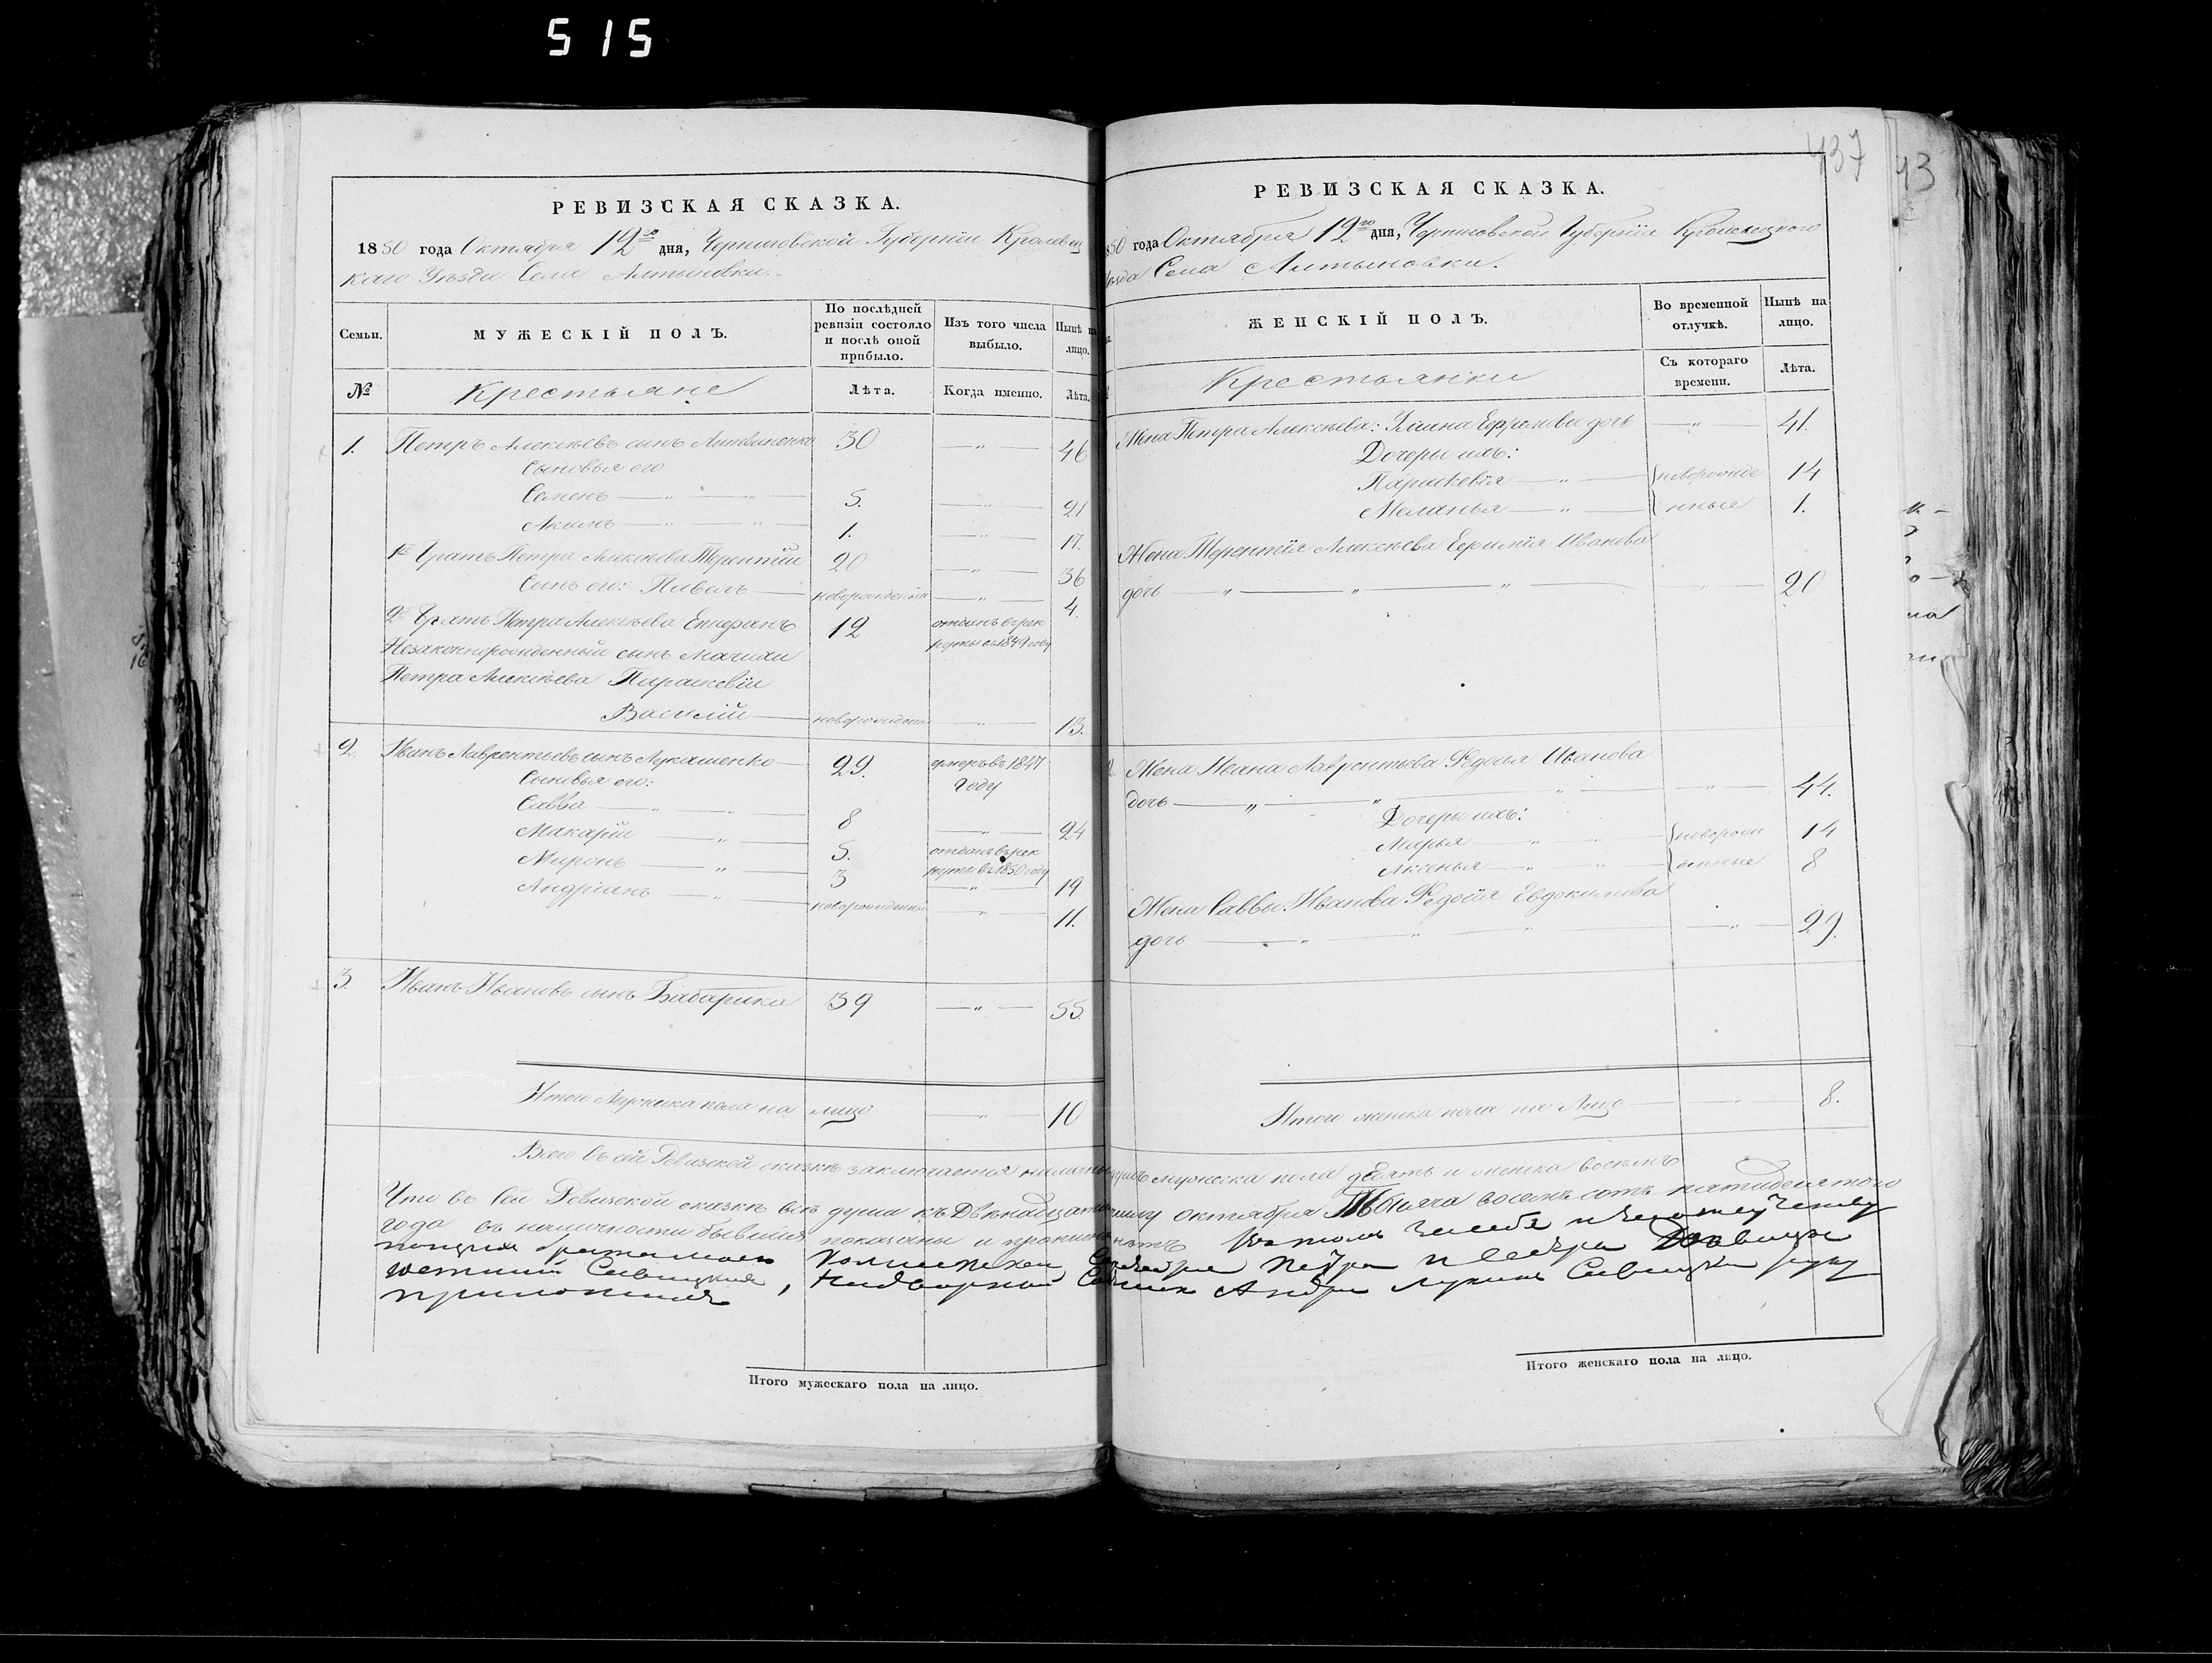 515
437
43
РЕВИЗСКАЯ СКАЗКА.
1850 года Октября 12го дня, Черниговской Губерніи Кролевец
каго Уѣзда Села Алтыновки.
Семьи.
МУЖЕСКІЙ ПОЛЪ.
По послѣдней
ревизіи состояло
и послѣ оной
прибыло.
Изъ того числа
выбыло.
Нынѣ на
лицо.
№
Крестьяне
Лѣта.
Когда именно.
Лѣта.
1. Петръ Алексѣевъ сынъ Литвиненко 30 —„— 46
Сыновья его
Семенъ —„— 5. —„— 21
Акимъ —„— „— 1. —„— 17.
1й братъ Петра Алексѣева Терентій 20 —„— 36
Сынъ его: Павелъ — новорожденный —„— 4.
2й братъ Петра Алексѣева Епифанъ 12 отданъ въ рек
руты въ 1849 году
Незаконнорожденный сынъ
Петра Алексѣева Параскевіи
Василій — новорожденный —„— 13.
2. Иванъ Лаврентьевъ сынъ Лукашенко — 29. умеръ въ 1847
году
Сыновья его:
Савва —„— „— 8 —„— 24
Макарій —„— 5. отданъ въ рек
руты въ 1850 году
Миронъ —„— 3 —„— 19
Андріанъ —„— новорожденный —„— 11.
3. Иванъ Ивановъ сынъ Бабарика 39 —„— 55.
Итого Мужеска пола на лицо —„— 10
РЕВИЗСКАЯ СКАЗКА.
1850 года Октября 12го дня, Черниговской Губерніи Кролевецкого
Уѣзда Села Алтыновки.
ЖЕНСКІЙ ПОЛЪ.
Во временной
отлучкѣ.
Нынѣ на
лицо.
Крестьянки
Съ котораго
времени.
Лѣта.
Жена Петра Алексѣева: Ульяна Ефремова дочь —„— 41.
Дочеры ихъ:
Параскевія —„— новорожде 14
Меланья —„— нные 1.
Жена Терентія Алексѣева Евфимія Иванова
дочь —„— „— „— —„— 20
Жена Ивана Лаврентьева Федосья Иванова
дочь —„— „— „— —„— 44.
Дочеры ихъ:
Марья —„— „— новорож 14
Аксенья —„— „— денные 8
Жена Саввы Иванова Федосія Евдокимова
дочь —„— „— „— —„— 29.
Итого женска пола на Лицо —„— 8.
Всего въ сей Ревизской сказкѣ заключается наличныхъ душъ мужеска пола десять и женска восемь
Что въ сей Ревизской сказкѣ всѣ души къ Двѣнадцатому числу октября Тысяча восемь сотъ пятидесятого
года въ наличности бывшія показаны и пропи
Савицкія, Надворный Совѣтник Андрей Лукинъ Савицкій руку
приложилъ
Итого мужескаго пола на лицо.
Итого женскаго пола на лицо.